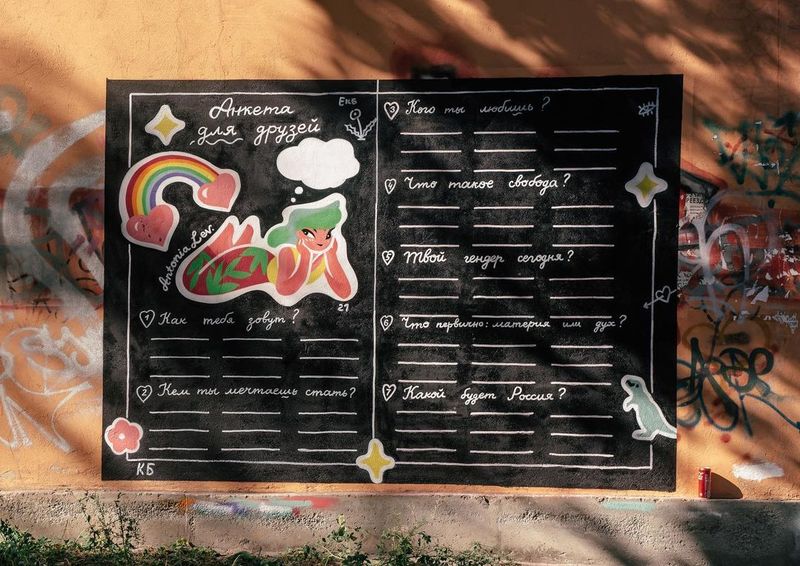 Анкета
для друзей
ЕКБ
Antonia Lev.
21
1 Как тебя зовут?
2 Кем ты мечтаешь стать?
КБ
3 Кого ты любишь?
4 Что такое свобода?
5 Твой гендер сегодня?
6 Что первично: материя или дух?
7 Какой будет Россия?